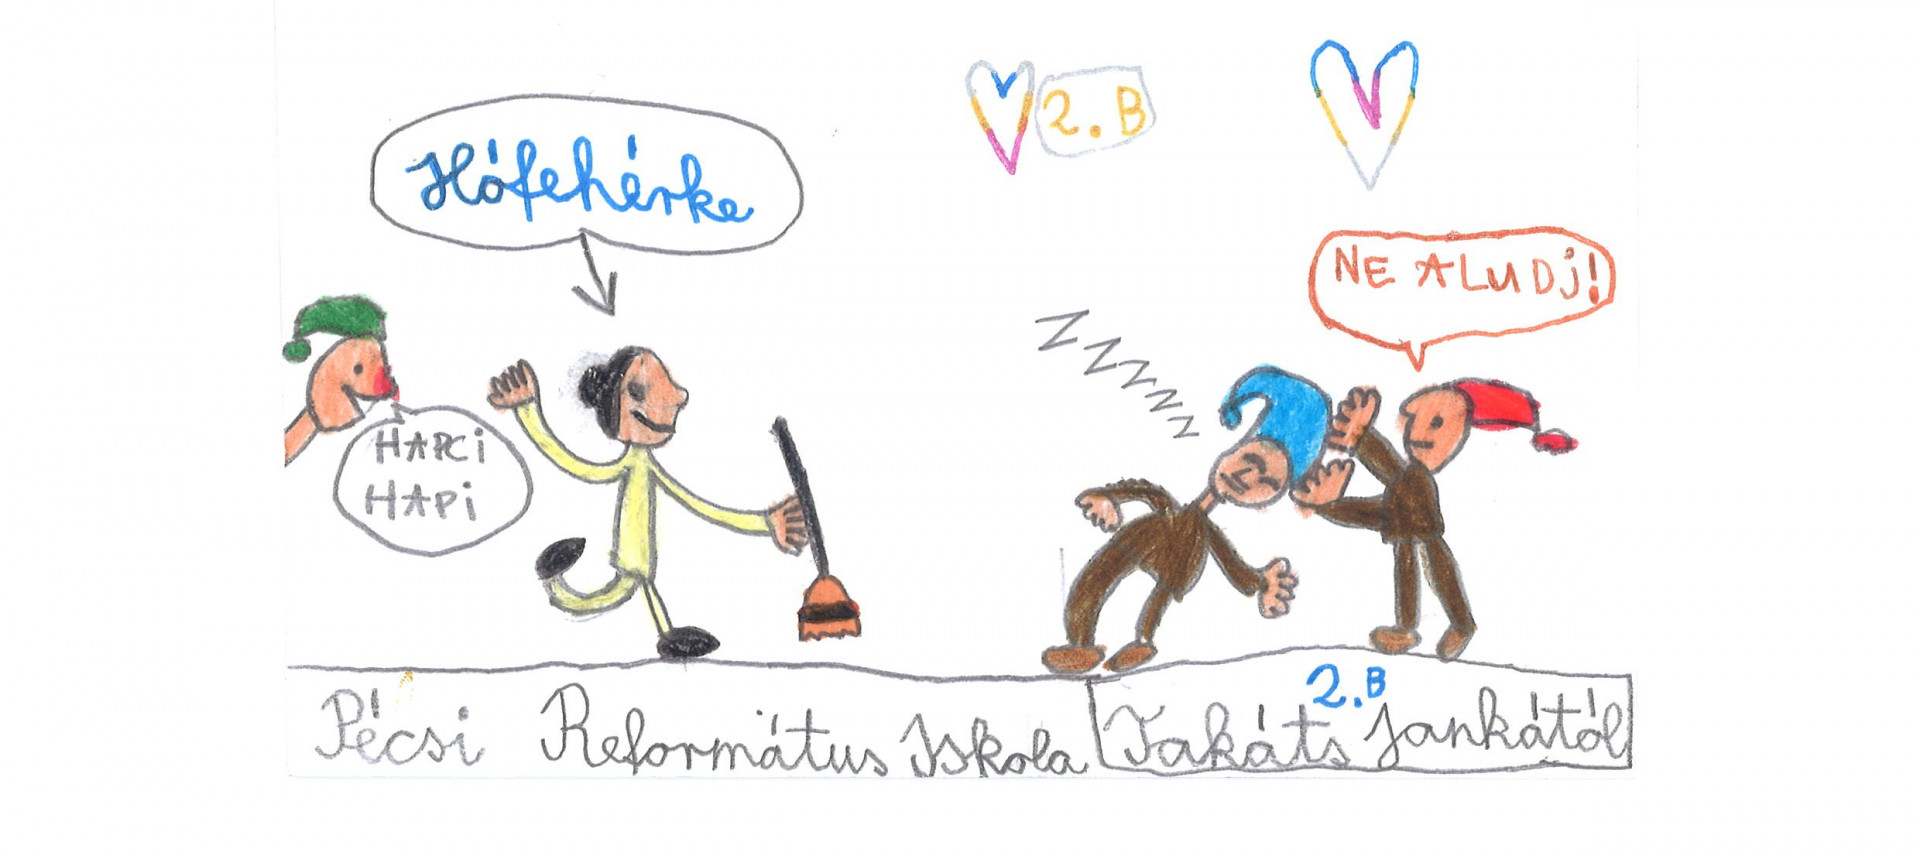 2. B
Hófehérke
NE ALUDJ!
ZZZZZZ
HAPCI
HAPI
2. B
Pécsi Református Iskola Takáts Jankától